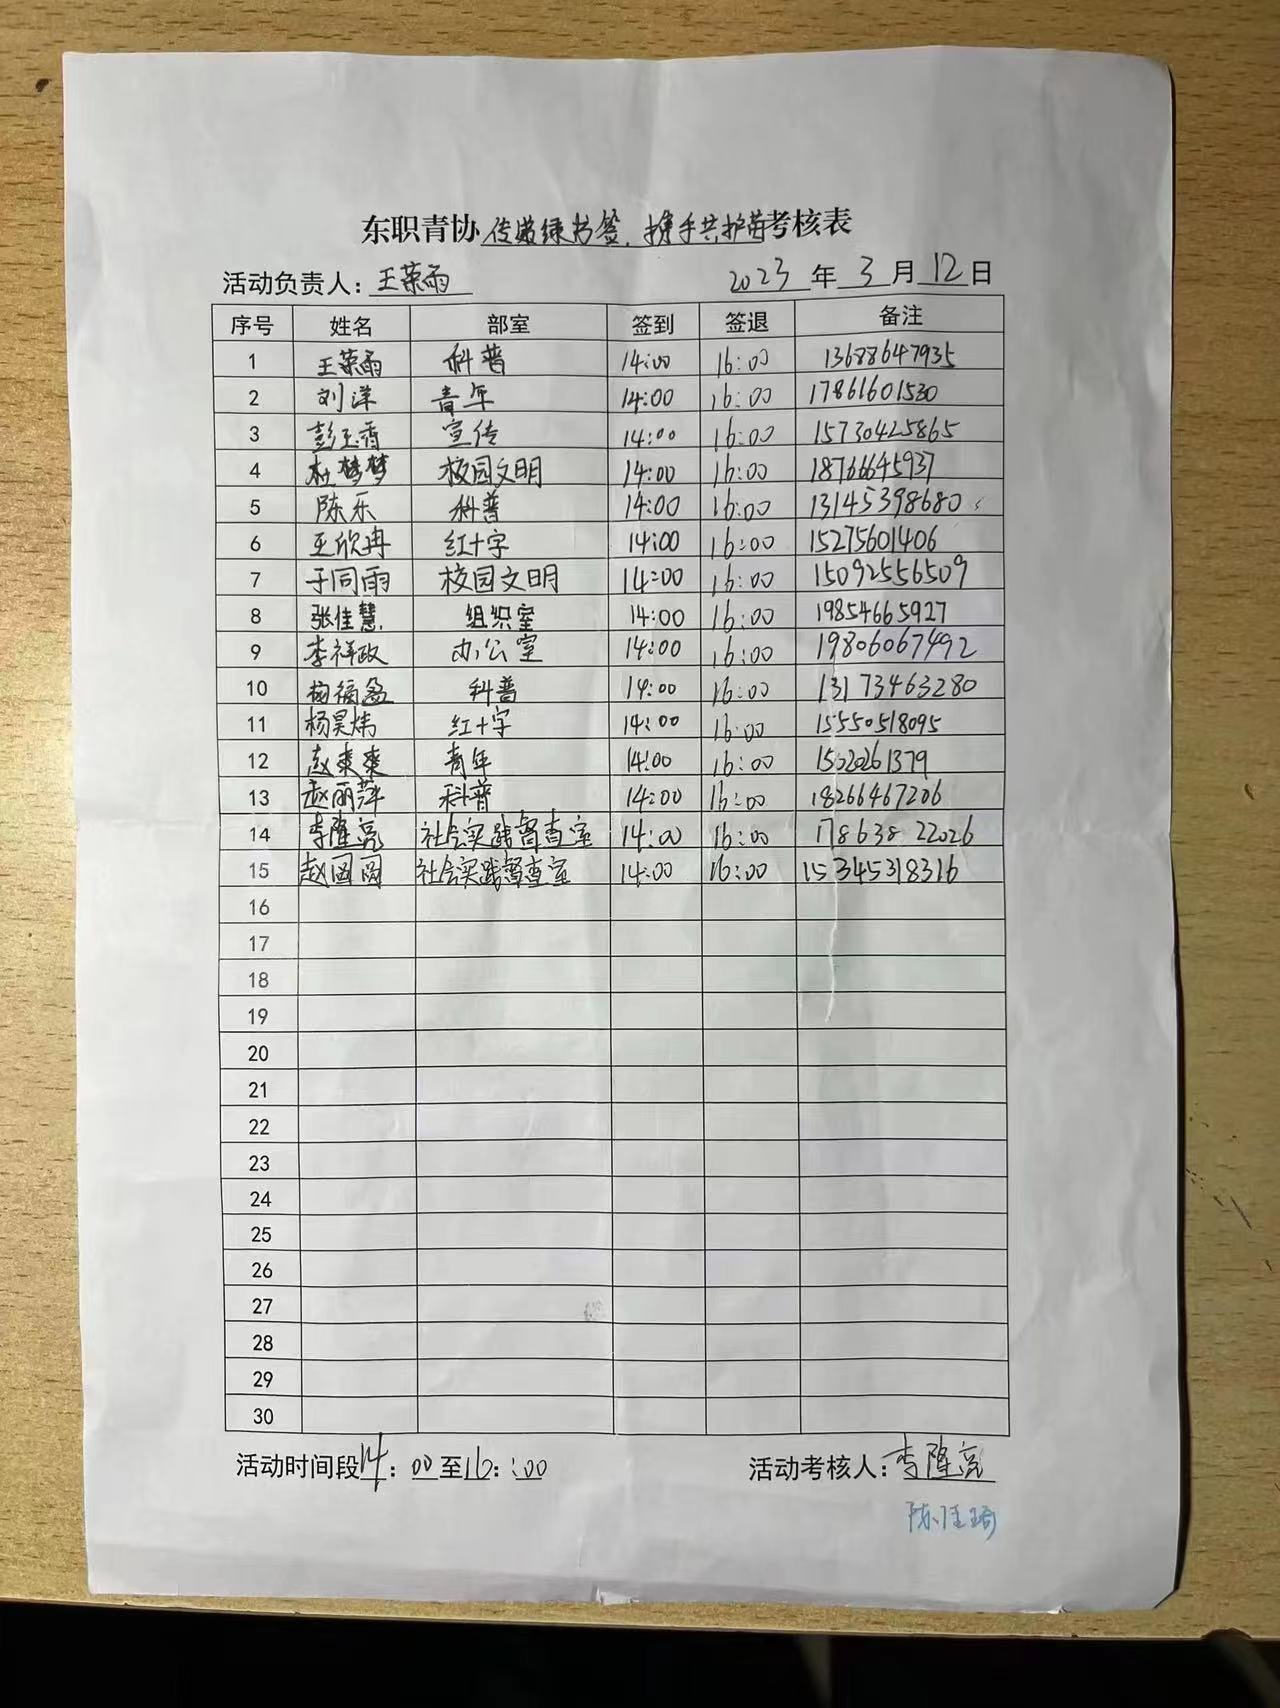 东职青协传递绿书签，携手共护苗考核表
活动负责人：王荣雨 2023年3月12日
序号 姓名 部室 签到 签退 备注
1 王荣雨 科普 14:00 16:00 13688647935
2 刘洋 青年 14:00 16:00 17861601530
3 彭玉香 宣传 14:00 16:00 15730425865
4 杜梦梦 校园文明 14:00 16:00 18766645937
5 陈乐 科普 14:00 16:00 13145398680
6 王欣冉 红十字 14:00 16:00 15275601406
7 于同雨 校园文明 14:00 16:00 15092556509
8 张佳慧 组织室 14:00 16:00 19854665927
9 李祥政 办公室 14:00 16:00 19806067492
10 福盈 科普 14:00 16:00 13173463280
11 杨昊炜 红十字 14:00 16:00 15550518095
12 赵爽爽 青年 14:00 16:00
13 赵丽萍 科普 14:00 16:00 18266467206
14 李隆亮 社会实践督查室 14:00 16:00 17863822026
15 赵圆圆 社会实践督查室 14:00 16:00 15345318316
16
17
18
19
20
21
22
23
24
25
26
27
28
29
30
活动时间段14：00至16：00 活动考核人：李隆亮
陈佳琦